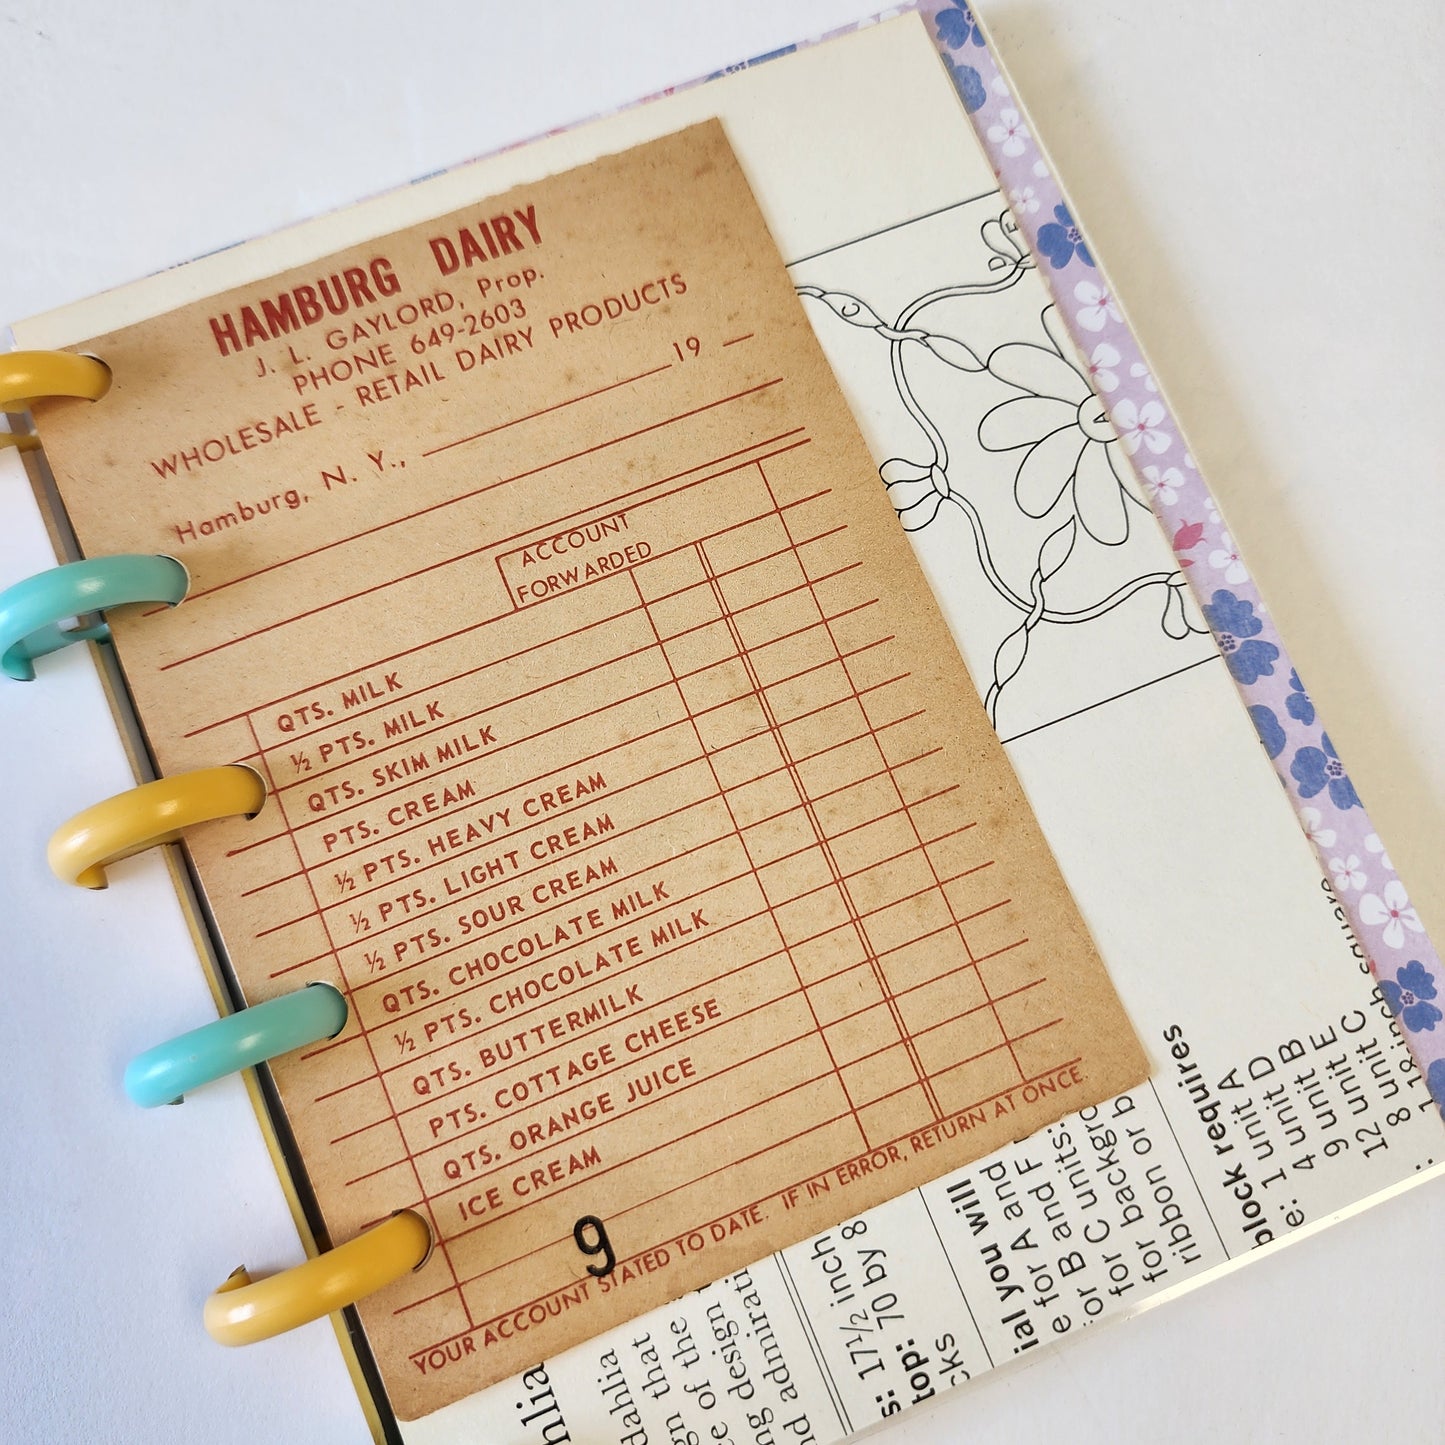 HAMBURG DAIRY
J. L. GAYLORD, Prop.
PHONE 649-2603
WHOLESALE - RETAIL DAIRY PRODUCTS
Hamburg, N. Y., 19
ACCOUNT
FORWARDED
QTS. MILK
½ PTS. MILK
QTS. SKIM MILK
PTS. CREAM
½ PTS. HEAVY CREAM
½ PTS. LIGHT CREAM
½ PTS. SOUR CREAM
QTS. CHOCOLATE MILK
½ PTS. CHOCOLATE MILK
QTS. BUTTERMILK
PTS. COTTAGE CHEESE
QTS. ORANGE JUICE
ICE CREAM
9
YOUR ACCOUNT STATED TO DATE. IF IN ERROR, RETURN AT ONCE.
D
E
C
A
dahlia
gn that
e of the
ng design
nd admirati
s: 17½ inch
top: 70 by 8
cks
ial you will
e for A and
or B and F
for C units:
for backgro
ribbon or b
block requires
e: 1 unit A
4 unit D
9 unit B
12 unit E
8 unit C
1 18-inch square